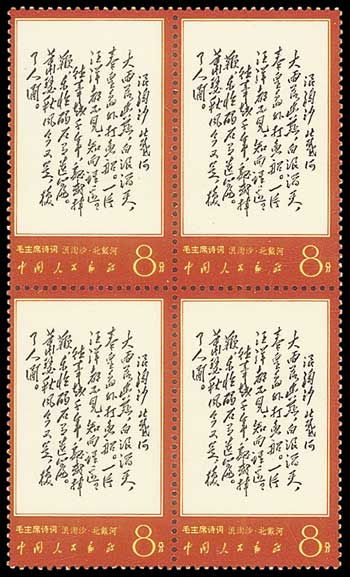 浪淘沙 北戴河
大雨落幽燕白浪滔天,
秦皇岛外打鱼船。一片
汪洋都不见,知向谁边
往事越千年,魏武挥
鞭东临碣石有遗篇。
萧瑟秋风今又是,换
了人间。
毛主席诗词 浪淘沙·北戴河
中国人民邮政
8分
浪淘沙 北戴河
大雨落幽燕白浪滔天,
秦皇岛外打鱼船。一片
汪洋都不见,知向谁边
往事越千年,魏武挥
鞭东临碣石有遗篇。
萧瑟秋风今又是,换
了人间。
毛主席诗词 浪淘沙·北戴河
中国人民邮政
8分
浪淘沙 北戴河
大雨落幽燕白浪滔天,
秦皇岛外打鱼船。一片
汪洋都不见,知向谁边
往事越千年,魏武挥
鞭东临碣石有遗篇。
萧瑟秋风今又是,换
了人间。
毛主席诗词 浪淘沙·北戴河
中国人民邮政
8分
浪淘沙 北戴河
大雨落幽燕白浪滔天,
秦皇岛外打鱼船。一片
汪洋都不见,知向谁边
往事越千年,魏武挥
鞭东临碣石有遗篇。
萧瑟秋风今又是,换
了人间。
毛主席诗词 浪淘沙·北戴河
中国人民邮政
8分